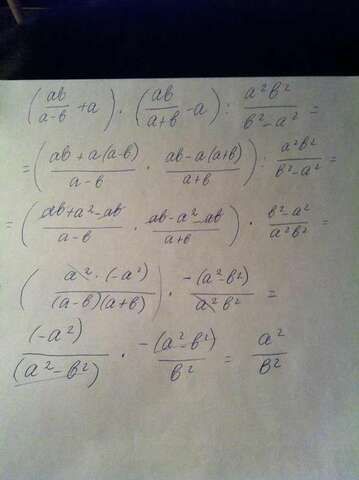 (ab/(a-b) + a) · (ab/(a+b) - a) : a²b²/(b²-a²) =
= ((ab + a(a-b))/(a-b) · (ab - a(a+b))/(a+b)) : a²b²/(b²-a²) =
= ((ab+a²-ab)/(a-b) · (ab-a²-ab)/(a+b)) · (b²-a²)/(a²b²) =
(a² · (-a²)/((a-b)(a+b))) · -(a²-b²)/(a²b²) =
(-a²)/(a²-b²) · -(a²-b²)/b² = a²/b²